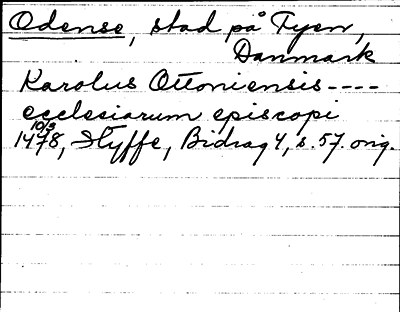 Odense, stad på Fyen,
Danmark
Karolus Ottoniensis ----
ecclesiarum episcopi
10/3
1478, Styffe, Bidrag 4, s. 57. orig.